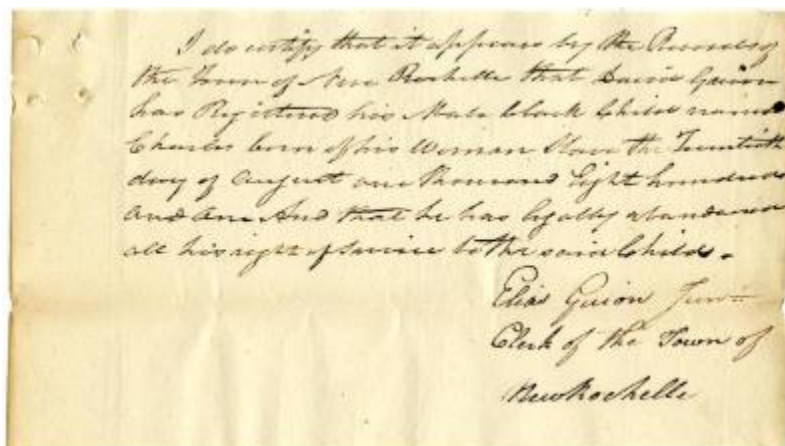 I do certify that it appears by the Records of
the Town of New Rochelle that David Guion
has Registered his Male black Child named
Charles born of his Woman Slave the Twentieth
day of August one thousand Eight hundred
and one And that he has legally abandoned
all his right of Service to the said Child.
Elias Guion Junr
Clerk of the Town of
New Rochelle